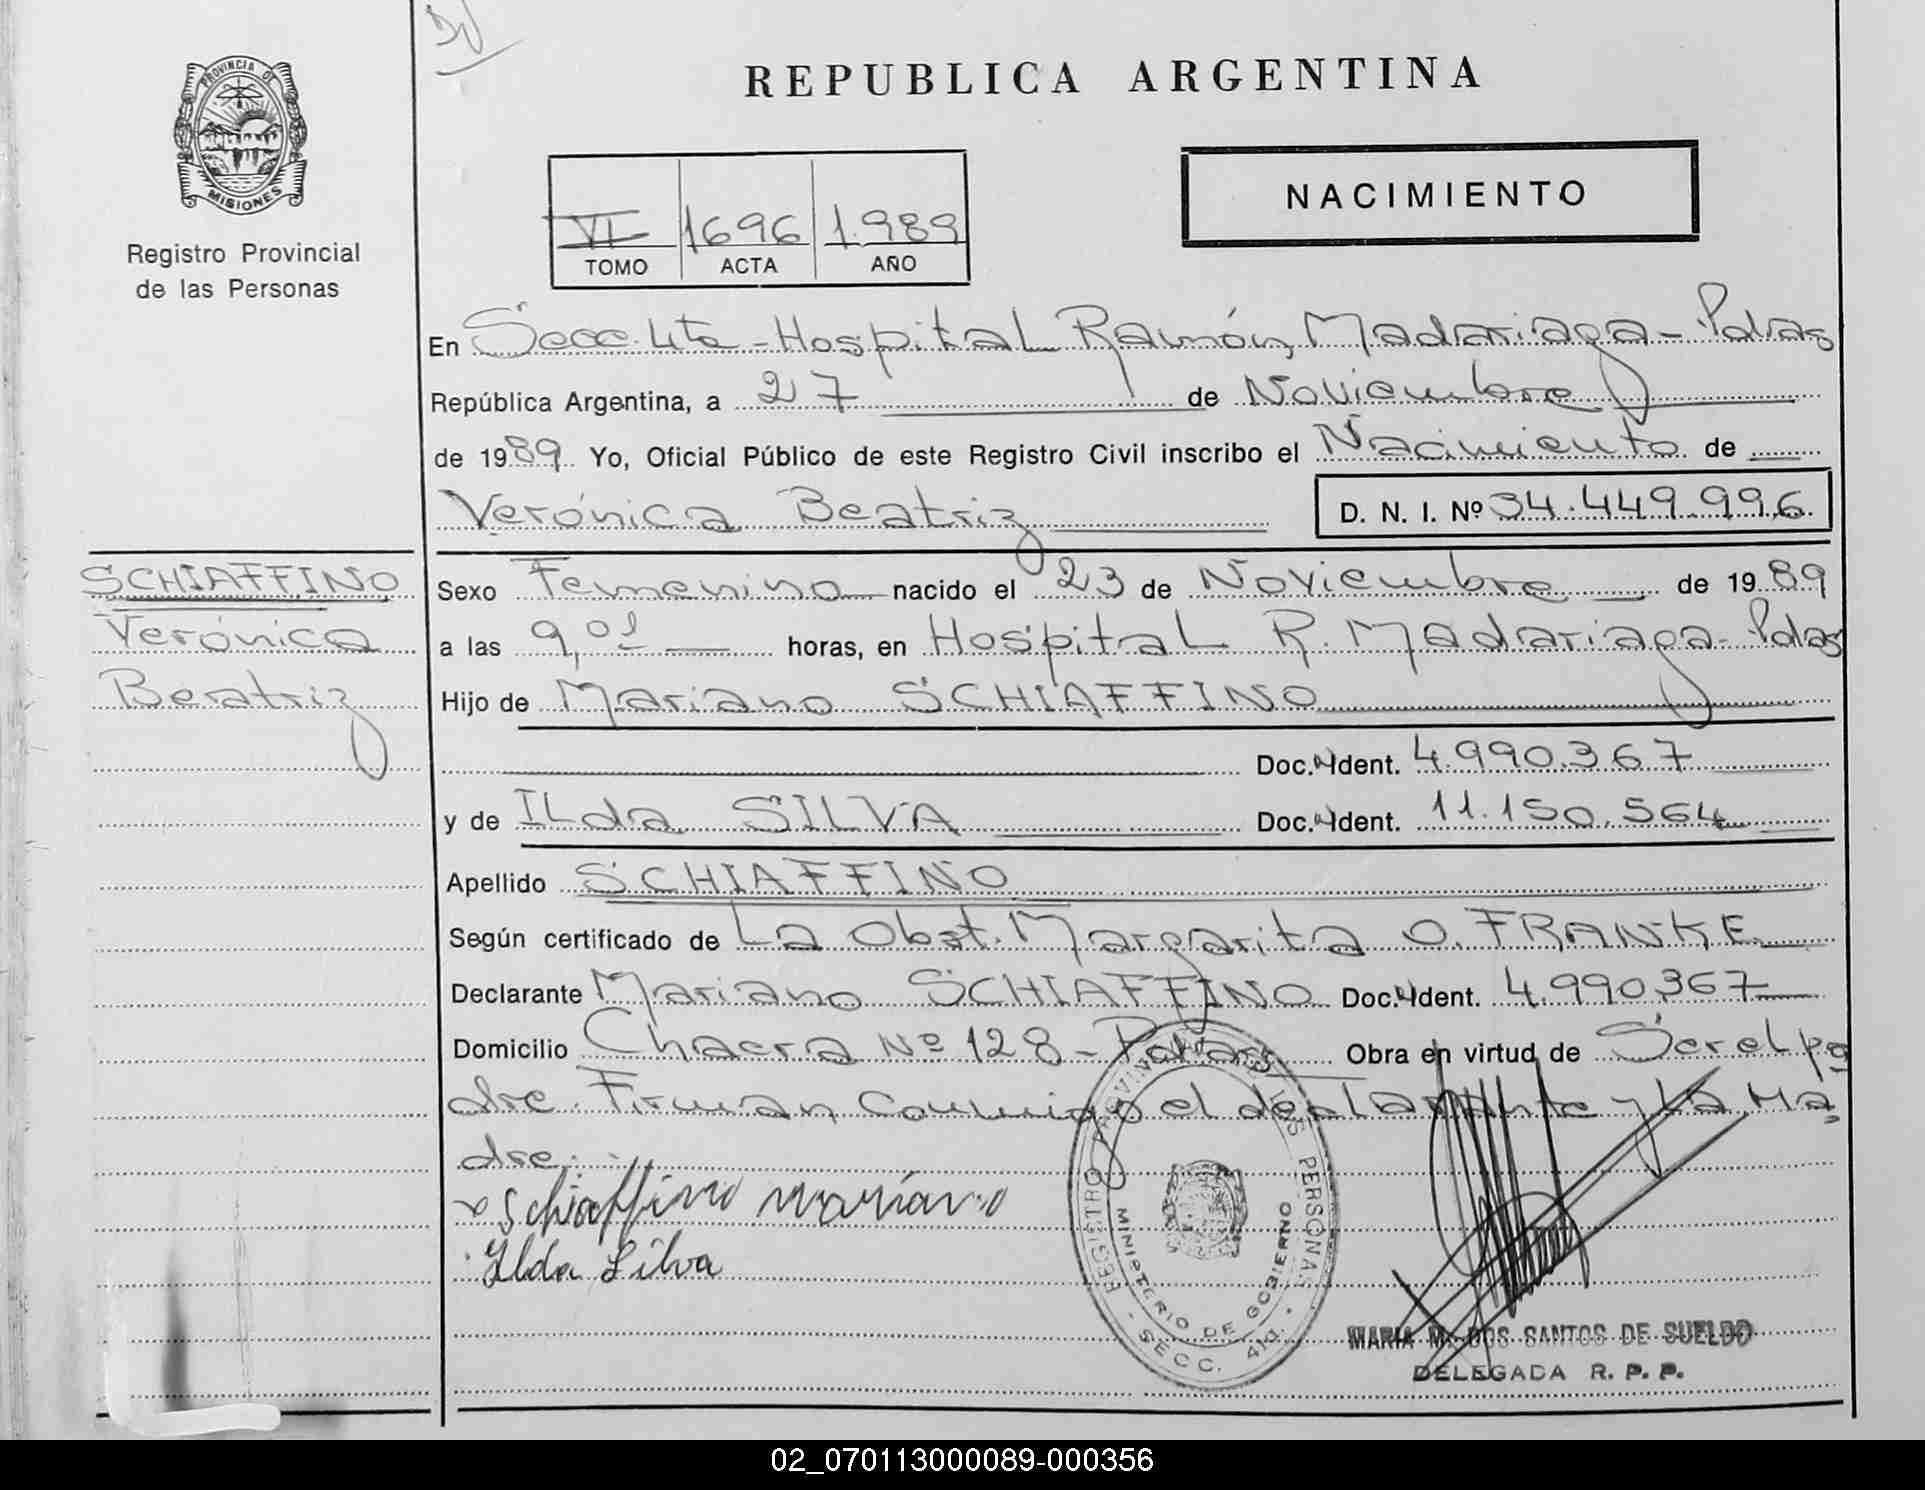 REPUBLICA ARGENTINA
PROVINCIA DE
MISIONES
Registro Provincial
de las Personas
VI 1696 1.989
TOMO ACTA AÑO
NACIMIENTO
En Secc. 4ta - Hospital Ramón Madariaga - Pdas
República Argentina, a 27 de Noviembre
de 1989 Yo, Oficial Público de este Registro Civil inscribo el Nacimiento de
Verónica Beatriz D. N. I. Nº 34.449.996
SCHIAFFINO
Verónica
Beatriz
Sexo Femenino nacido el 23 de Noviembre de 1989
a las 9,01 horas, en Hospital R. Madariaga - Pdas
Hijo de Mariano SCHIAFFINO
Doc. Ident. 4.990.367
y de ILda SILVA Doc. Ident. 11.150.564
Apellido SCHIAFFINO
Según certificado de La Obst. Margarita O. FRANKE
Declarante Mariano SCHIAFFINO Doc. Ident. 4.990.367
Domicilio Chacra Nº 128 - Pdas Obra en virtud de Ser el pa
dre. Firman conmigo el declarante y La Ma
dre.
Schiaffino mariano
Ilda Silva
REGISTRO PROVINCIAL DE LAS PERSONAS
MINISTERIO DE GOBIERNO
- SECC. 4ta. -
MARIA M. DOS SANTOS DE SUELDO
DELEGADA R. P. P.
02_070113000089-000356